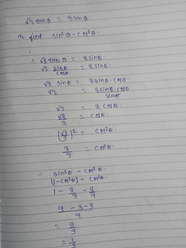 √3 tanθ = 3 sinθ
To find sin²θ - cos²θ
∴ √3 tanθ = 3 sinθ
√3 sinθ/cosθ = 3 sinθ
√3 sinθ = 3 sinθ · cosθ
√3 = 3 sinθ · cosθ/sinθ
√3 = 3 cosθ
√3/3 = cosθ
(√3/3)² = cos²θ
3/9 = cos²θ
∴ sin²θ - cos²θ
(1-cos²θ) - cos²θ
1 - 3/9 - 3/9
9 - 3 - 3/9
= 3/9
= 1/3